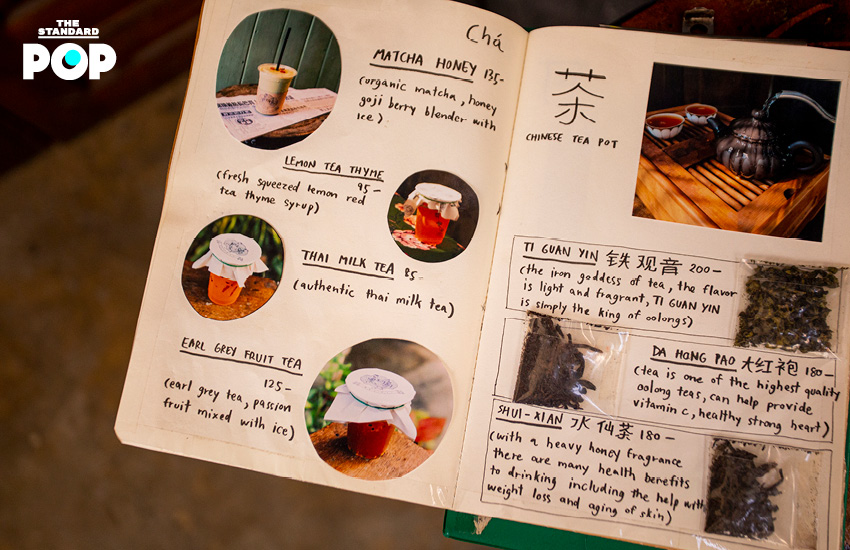 THE
STANDARD
POP
Chá
MATCHA HONEY 135-
(organic matcha, honey
goji berry blender with
ice)
LEMON TEA THYME
95-
(fresh squeezed lemon red
tea thyme syrup)
THAI MILK TEA 85-
(authentic thai milk tea)
EARL GREY FRUIT TEA
125-
(earl grey tea, passion
fruit mixed with ice)
茶
CHINESE TEA POT
TI GUAN YIN 铁观音 200-
(the iron goddess of tea, the flavor
is light and fragrant, TI GUAN YIN
is simply the king of oolongs)
DA HONG PAO 大红袍 180-
(tea is one of the highest quality
oolong teas, can help provide
vitamin c, healthy strong heart)
SHUI-XIAN 水仙茶 180-
(with a heavy honey fragrance
there are many health benefits
to drinking including the help with
weight loss and aging of skin)